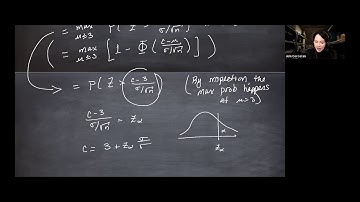 = max μ≤3 P( Z > (c-3)/(σ/√n)
( = max μ≤3 [ 1 - Φ( (c-μ)/(σ/√n) ) ] )
= P( Z > (c-3)/(σ/√n) )
( By inspection, the
max prob happens
at μ=3 )
(c-3)/(σ/√n) = z_α
c = 3 + z_α
α
z_α